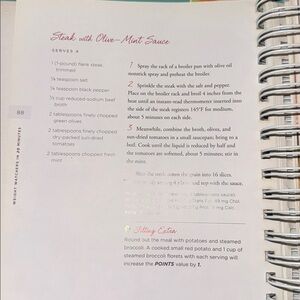 Steak with Olive–Mint Sauce
SERVES 4
1 (1-pound) flank steak, trimmed
¼ teaspoon salt
¼ teaspoon black pepper
½ cup reduced-sodium beef broth
2 tablespoons finely chopped green olives
2 tablespoons finely chopped dry-packed sundried tomatoes
2 tablespoons chopped fresh mint
1 Spray the rack of a broiler pan with olive oil
nonstick spray and preheat the broiler.
2 Sprinkle the steak with the salt and pepper.
Place on the broiler rack and broil 4 inches from the
heat until an instant-read thermometer inserted into
the side of the steak registers 145°F for medium,
about 5 minutes on each side.
3 Meanwhile, combine the broth, olives, and
sun-dried tomatoes in a small saucepan; bring to a
boil. Cook until the liquid is reduced by half and
the tomatoes are softened, about 5 minutes; stir in
the mint.
the steak the grain into 16 slices.
and top with the sauce.
88
WEIGHT WATCHERS IN 20 MINUTES
Filling Extra
Round out the meal with potatoes and steamed
broccoli. A cooked small red potato and 1 cup of
steamed broccoli florets with each serving will
increase the POINTS value by 1.